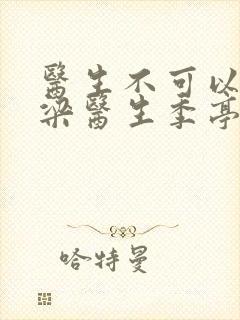 醫生不可以
梁醫生季亭
哈特曼